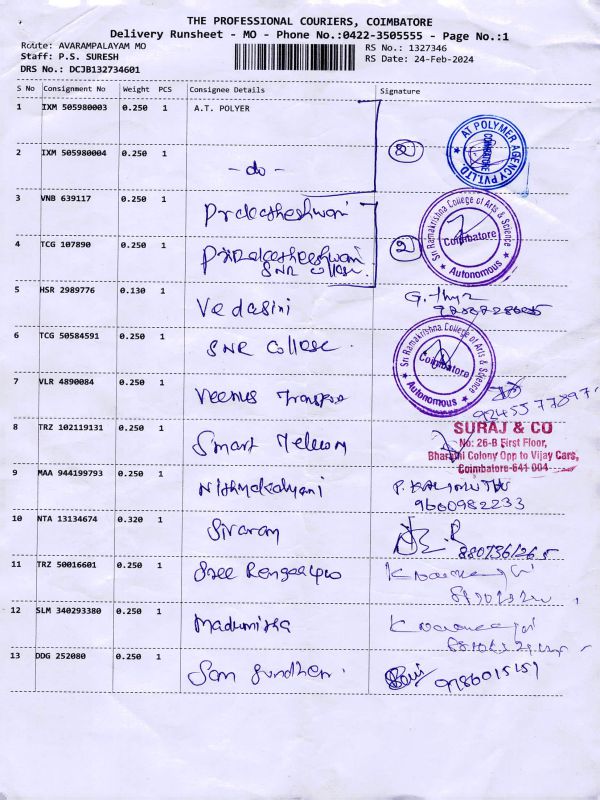 THE PROFESSIONAL COURIERS, COIMBATORE
Delivery Runsheet - MO - Phone No.:0422-3505555 - Page No.:1
Route: AVARAMPALAYAM MO
RS No.: 1327346
Staff: P.S. SURESH
RS Date: 24-Feb-2024
DRS No.: DCJB132734601
S No Consignment No Weight PCS Consignee Details Signature
1 IXM 505980003 0.250 1 A.T. POLYER
2 AT POLYMER AGENCY PVT.LTD. COIMBATORE
2 IXM 505980004 0.250 1 - do -
3 VNB 639117 0.250 1
2 Sri Ramakrishna College of Arts & Science Coimbatore Autonomous
4 TCG 107890 0.250 1 SNR College.
5 HSR 2989776 0.130 1 Vedasini
6 TCG 50584591 0.250 1 SNR College.
Sri Ramakrishna College of Arts & Science Coimbatore Autonomous
7 VLR 4890084 0.250 1 Veenus
9245577897
8 TRZ 102119131 0.250 1 Smart Telecom
SURAJ & CO
No: 26-B First Floor,
Bharathi Colony Opp to Vijay Cars,
Coimbatore-641 004
9 MAA 944199793 0.250 1 Nithyakalyani P. KALIMUTHU
9600982233
10 NTA 13134674 0.320 1 Sivaram
8807361265
11 TRZ 50016601 0.250 1 Sree
12 SLM 340293380 0.250 1 Madumitha
13 DDG 252080 0.250 1 Sam 9786015151